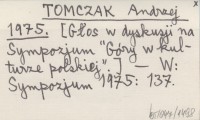 TOMCZAK Andrzej
1975. [Głos w dyskusji na
Sympozjum "Góry w kul-
turze polskiej".] — W:
Sympozjum 1975: 137.